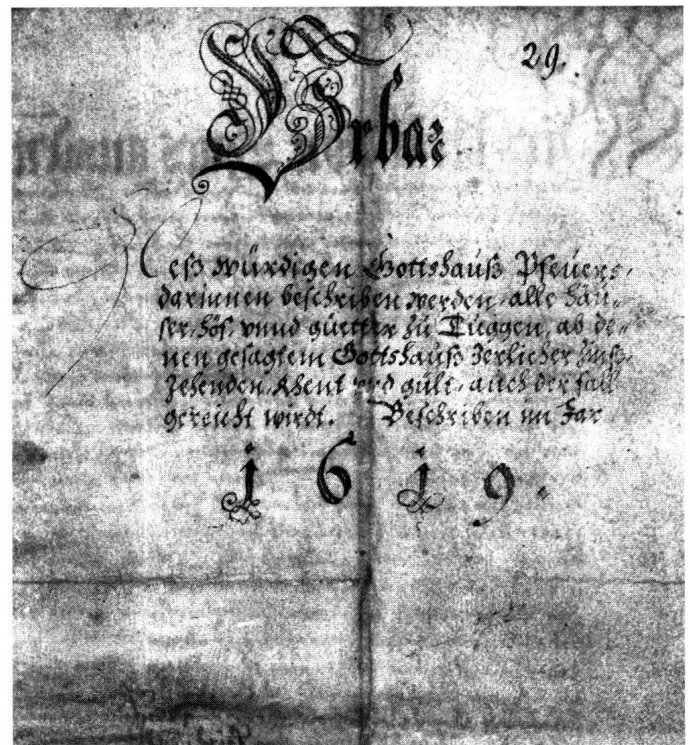 29.
Urbar
Deß würdigen Gottshauß Pfeuers,
darinnen beschriben werden, alle häu-
ser, höf, vnnd güetter zu Tuggen, ab de-
nen gesagtem Gottshauß Jerlicher Zinß,
Zehenden, Rhent vnd gült, auch der fall
gereicht wirdt. Beschriben im Jar
1619.